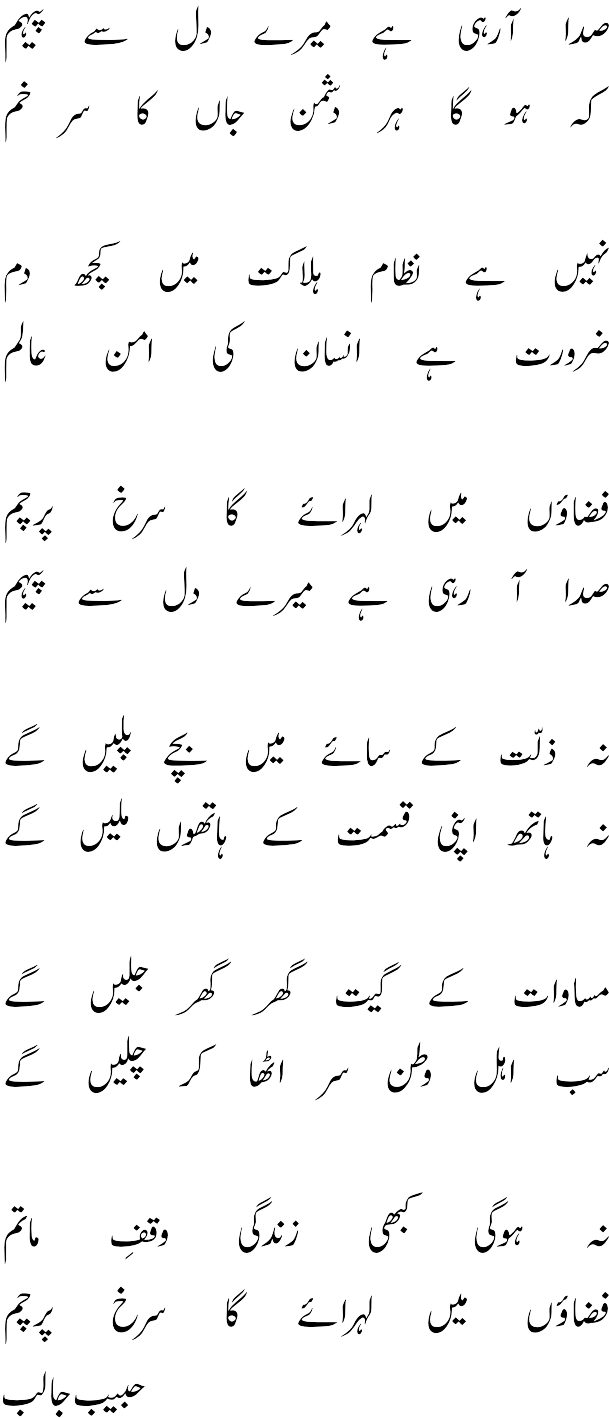 صدا آرہی ہے میرے دل سے پیہم
کہ ہو گا ہر دشمن جاں کا سر خم
نہیں ہے نظام ہلاکت میں کچھ دم
ضرورت ہے انسان کی امن عالم
فضاؤں میں لہرائے گا سرخ پرچم
صدا آ رہی ہے میرے دل سے پیہم
نہ ذلّت کے سائے میں بچے پلیں گے
نہ ہاتھ اپنی قسمت کے ہاتھوں ملیں گے
مساوات کے گیت گھر گھر جلیں گے
سب اہل وطن سر اٹھا کر چلیں گے
نہ ہوگی کبھی زندگی وقفِ ماتم
فضاؤں میں لہرائے گا سرخ پرچم
حبیب جالب